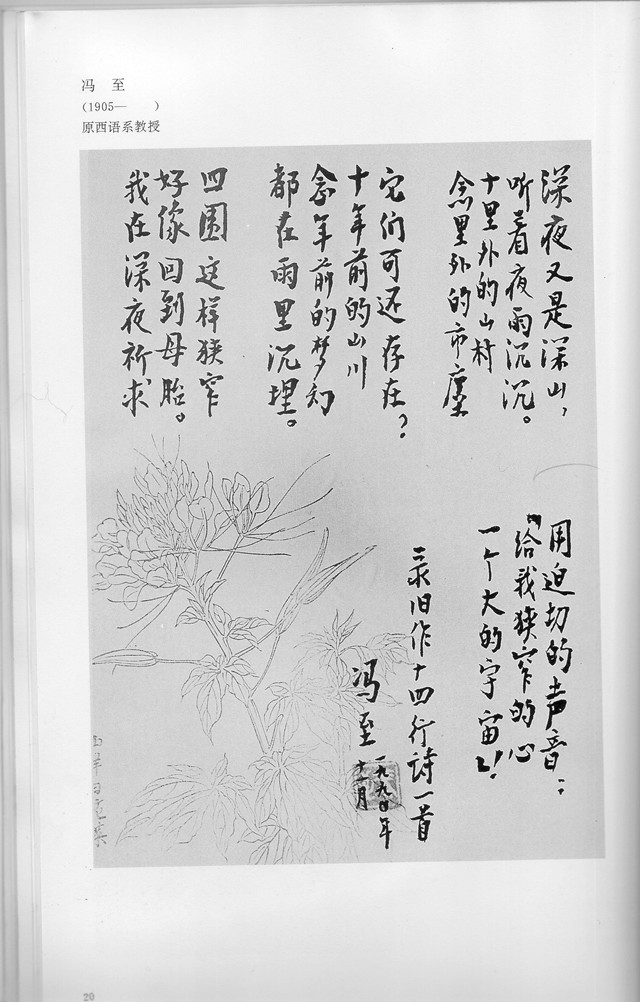 冯 至
(1905— )
原西语系教授
深夜又是深山，
听着夜雨沉沉。
十里外的山村
念里外的市廛
它们可还存在？
十年前的山川
念年前的梦幻
都在雨里沉埋。
四围这样狭窄
好像回到母胎。
我在深夜祈求
用迫切的声音：
“给我狭窄的心
一个大的宇宙！”
录旧作十四行诗一首
冯至
一九九〇年
十一月
20